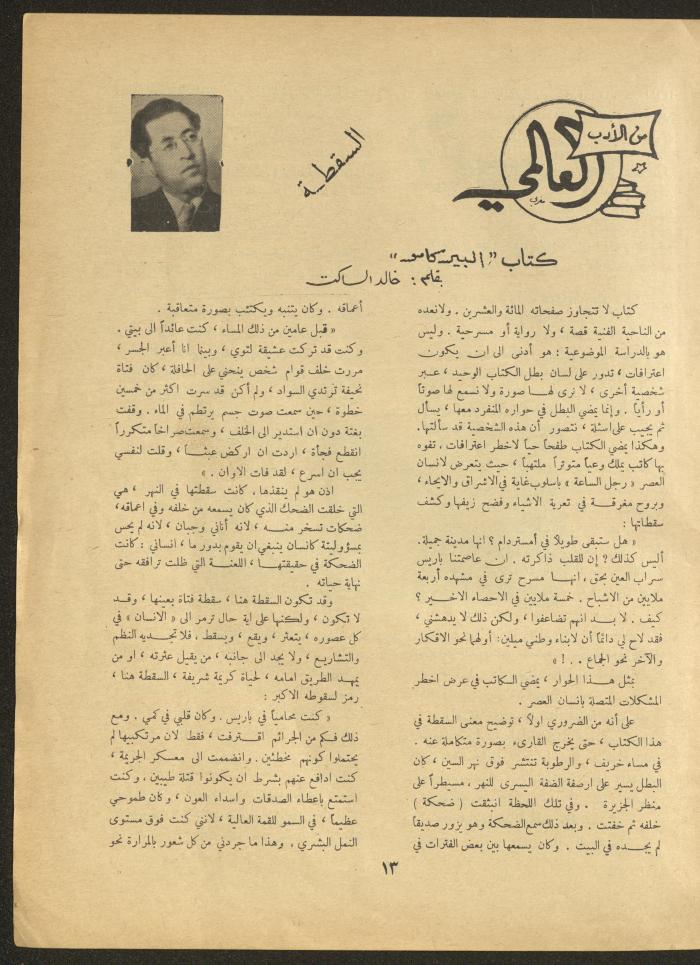 من الأدب
العالمي
السقطة
كتاب "البير كامو"
بقلم : خالد الساكت
كتاب لا تتجاوز صفحاته المائة والعشرين . ولانعده
من الناحية الفنية قصة ، ولا رواية أو مسرحية . وليس
هو بالدراسة الموضوعية ؛ هو أدنى الى ان يكون
اعترافات ، تدور على لسان بطل الكتاب الوحيد ، عبر
شخصية أخرى ، لا نرى لها صورة ولا نسمع لها صوتاً
أو رأياً . وإنما يمضي البطل في حواره المنفرد معها ، يسأل
ثم يجيب على اسئلة ، نتصور أن هذه الشخصية قد سألتها.
وهكذا يمضي الكتاب طفحاً حياً لاخطر اعترافات ، تفوه
بها كاتب يملك وعياً متوتراً ملتهباً ، حيث يتعرض لانسان
العصر « رجل الساعة » باسلوب غاية في الاشراق والايحاء ،
وبروح مغرقة في تعرية الاشياء وفضح زيفها وكشف
سقطاتها :
« هل ستبقى طويلاً في أمستردام ؟ انها مدينة جميلة.
أليس كذلك ؟ إن للقلب ذاكرته . ان عاصمتنا باريس
سراب العين بحق ، انها مسرح ترى في مشهده أربعة
ملايين من الاشباح . خمسة ملايين في الاحصاء الاخير ؟
كيف . لا بد انهم تضاعفوا ، ولكن ذلك لا يدهشني ،
فقد لاح لي دائماً أن لابناء وطني ميلين: أولهما نحو الافكار
والآخر نحو الجماع . . ! »
بمثل هذا الحوار ، يمضي الكاتب في عرض اخطر
المشكلات المتصلة بانسان العصر .
على أنه من الضروري اولاً ، توضيح معنى السقطة في
هذا الكتاب ، حتى يخرج القارىء بصورة متكاملة عنه .
في مساء خريف ، والرطوبة تنتشر فوق نهر السين ، كان
البطل يسير على ارصفة الضفة اليسرى للنهر ، مسيطراً على
منظر الجزيرة . وفي تلك اللحظة انبثقت ( ضحكة )
خلفه ثم خفتت . وبعد ذلك سمع الضحكة وهو يزور صديقاً
لم يجده في البيت . وكان يسمعها بين بعض الفترات في
أعماقه . وكان يتنبه ويكتئب بصورة متعاقبة .
« قبل عامين من ذلك المساء ، كنت عائداً الى بيتي .
وكنت قد تركت عشيقة لتوي ، وبينما انا أعبر الجسر ،
مررت خلف قوام شخص ينحني على الحافلة ، كان فتاة
نحيفة ترتدي السواد ، ولم أكن قد سرت اكثر من خمسين
خطوة ، حين سمعت صوت جسم يرتطم في الماء . وقفت
بغتة دون ان استدير الى الخلف ، وسمعت صراخاً متكرراً
انقطع فجأة ، اردت ان اركض عبثاً ، وقلت لنفسي
يجب ان اسرع ، لقد فات الاوان . »
اذن هو لم ينقذها . كانت سقطتها في النهر ، هي
التي خلقت الضحك الذي كان يسمعه من خلفه وفي اعماقه،
ضحكات تسخر منه ، لانه أناني وجبان ، لانه لم يحس
بمسؤوليته كانسان ينبغي ان يقوم بدور ما ، انساني : كانت
الضحكة في حقيقتها ، اللعنة التي ظلت ترافقه حتى
نهاية حياته .
وقد تكون السقطة هنا ، سقطة فتاة بعينها ، وقد
لا تكون ، ولكنها على اية حال ترمز الى « الانسان » في
كل عصوره ، يتعثر ، ويقع ، ويسقط . فلا تجديه النظم
والتشاريع ، ولا يجد الى جانبه ، من يقيل عثرته ، او من
يمهد الطريق امامه ، لحياة كريمة شريفة ، السقطة هنا ،
رمز لسقوطه الاكبر :
« كنت محامياً في باريس . وكان قلبي في كمي . ومع
ذلك فكم من الجرائم اقترفت ، فقط لان مرتكبيها لم
يحتملوا كونهم مخطئين . وانضممت الى معسكر الجريمة ،
كنت ادافع عنهم بشرط ان يكونوا قتلة طيبين . وكنت
استمتع باعطاء الصدقات واسداء العون ، وكان طموحي
عظيماً ، في السمو للقمة العالية ، لانني كنت فوق مستوى
النمل البشري . وهذا ما جردني من كل شعور بالمرارة نحو
١٣